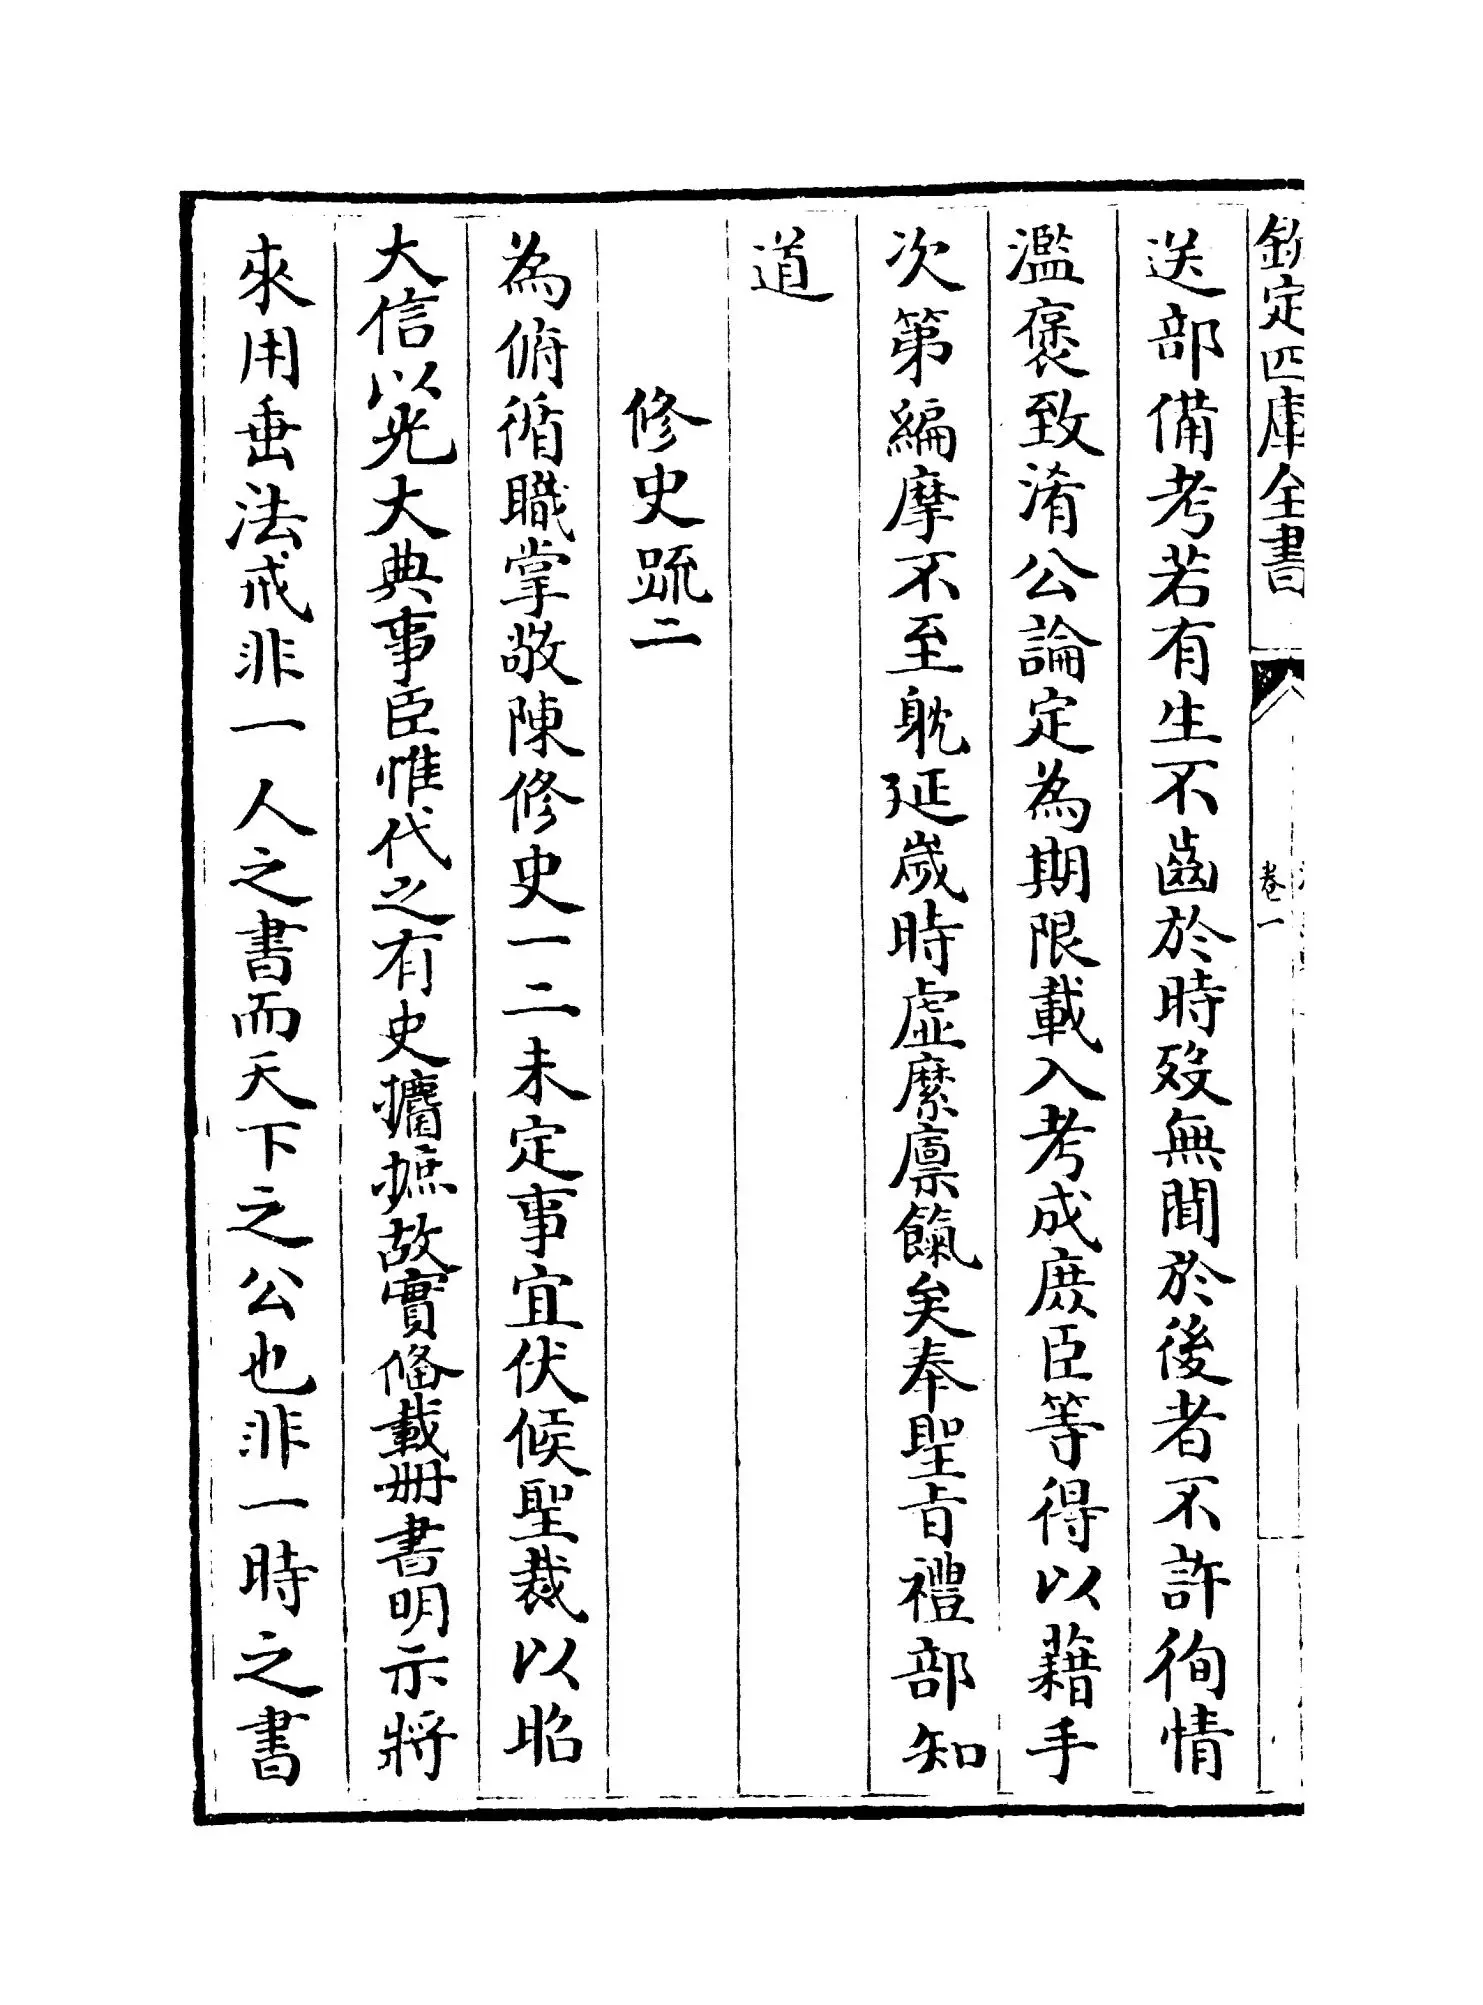 欽定四庫全書
卷一
送部備考若有生不齒於時歿無聞於後者不許徇情
濫褒致淆公論定為期限載入考成庶臣等得以藉手
次第編摩不至躭延歲時虛縻廪餼矣奉聖旨禮部知
道
修史疏二
為俯循職掌敬陳修史一二未定事宜伏候聖裁以昭
大信以光大典事臣惟代之有史攟摭故實俻載册書明示將
來用垂法戒非一人之書而天下之公也非一時之書